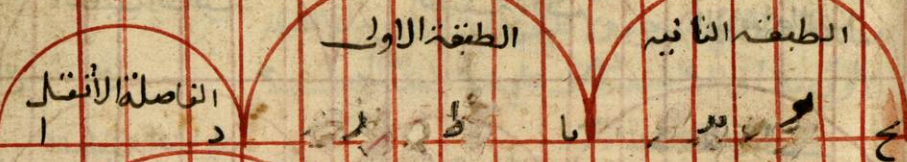 الطبقة الثانية
الطبقة الاولى
الفاصلة الأثقل
ح
يا ط
د ا